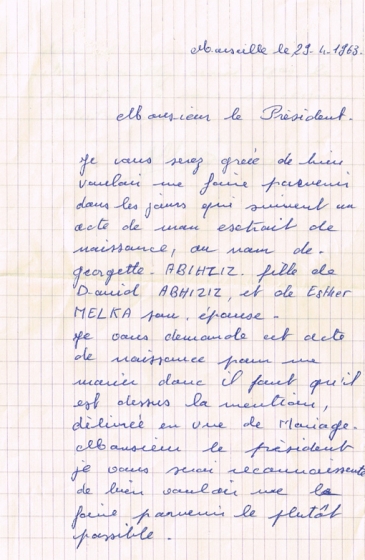 Marseille le, 29. 4. 1963.
Monsieur le Président.
Je vous serez greée de bien
vouloir me faire parvenir
dans les jours qui suivent un
acte de mon esctrait de
naissance, au nom de.
georgette. ABIHZIZ. fille de
David ABHIZIZ, et de Esther
MELKA son. épouse.
Je vous demande cet acte
de naissance pour me
marier donc il faut qu'il
est dessus la mention,
délivrée en vue de Mariage.
Monsieur le président
je vous serai reconnaissente
de bien vouloir me le
faire parvenir le plutôt
possible.